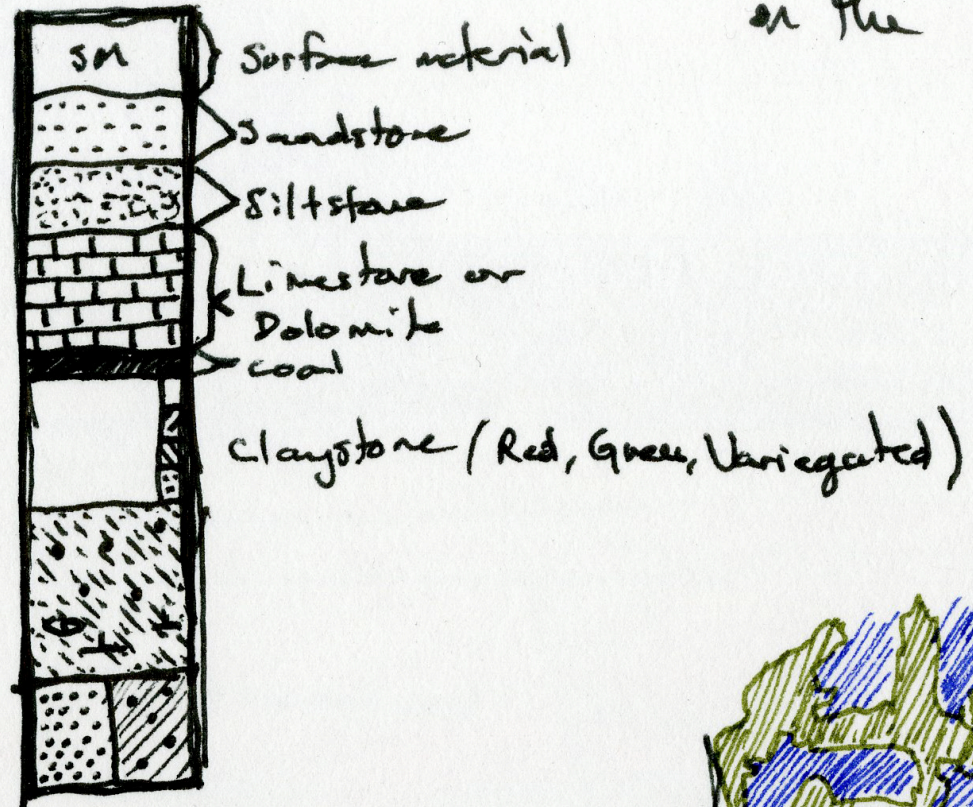 on the
SM
Surface material
Sandstone
Siltstone
Limestone or
Dolomite
coal
Claystone (Red, Green, Variegated)